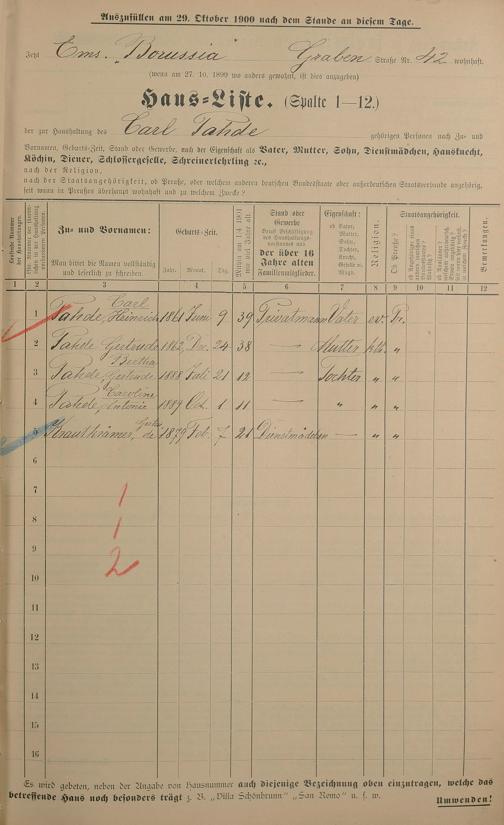 Auszufüllen am 29. Oktober 1900 nach dem Stande an diesem Tage.
Jetzt Ems. „Borussia Graben Straße Nr. 42 wohnhaft.
(wenn am 27. 10. 1899 wo anders gewohnt, ist dies anzugeben)
Haus-Liste. (Spalte 1—12.)
der zur Haushaltung des Carl Tahde gehörigen Personen nach Zu- und
Vornamen, Geburts-Zeit, Stand oder Gewerbe, nach der Eigenschaft als Vater, Mutter, Sohn, Dienstmädchen, Hausknecht,
Köchin, Diener, Schlossergeselle, Schreinerlehrling ꝛc.,
nach der Religion,
nach der Staatsangehörigkeit, ob Preuße, oder welchem anderen deutschen Bundesstaate oder außerdeutschen Staatsverbande angehörig,
seit wann in Preußen überhaupt wohnhaft und zu welchem Zwecke?
Laufende Nummer der Haushaltungen.
Zu- und Vornamen:
Man bittet die Namen vollständig und leserlich zu schreiben.
Geburts-Zeit.
Jahr. Monat. Tag.
Stand oder Gewerbe
der über 16 Jahre alten Familienmitglieder.
Eigenschaft:
ob Vater, Mutter, Sohn, Tochter, Knecht, Geselle ꝛc. Magd.
Religion.
Staatsangehörigkeit.
Ob Preuße?
Bemerkungen.
1 2 3 4 5 6 7 8 9 10 11 12
1 Tahde, Carl Heinrich 1861 Juni 9 39 Privatmann Vater ev. Pr.
2 Tahde Gertrude 1862 Dec. 24 38 — Mutter kth. „
3 Tahde, Bertha Gertrude 1888 Juli 21 12 — Tochter „ „
4 Tahde, Caroline Antonie 1889 Oct. 1 11 — „ „ „
5 Krautkrämer, 1879 Feb. 7 21 Dienstmädchen — „ „
6
7
1
8
1
9
2
10
11
12
13
14
15
16
Es wird gebeten, neben der Angabe von Hausnummer auch diejenige Bezeichnung oben einzutragen, welche das
betreffende Haus noch besonders trägt z. B. „Villa Schönbrunn“ „San Remo“ u. s. w.
Umwenden!